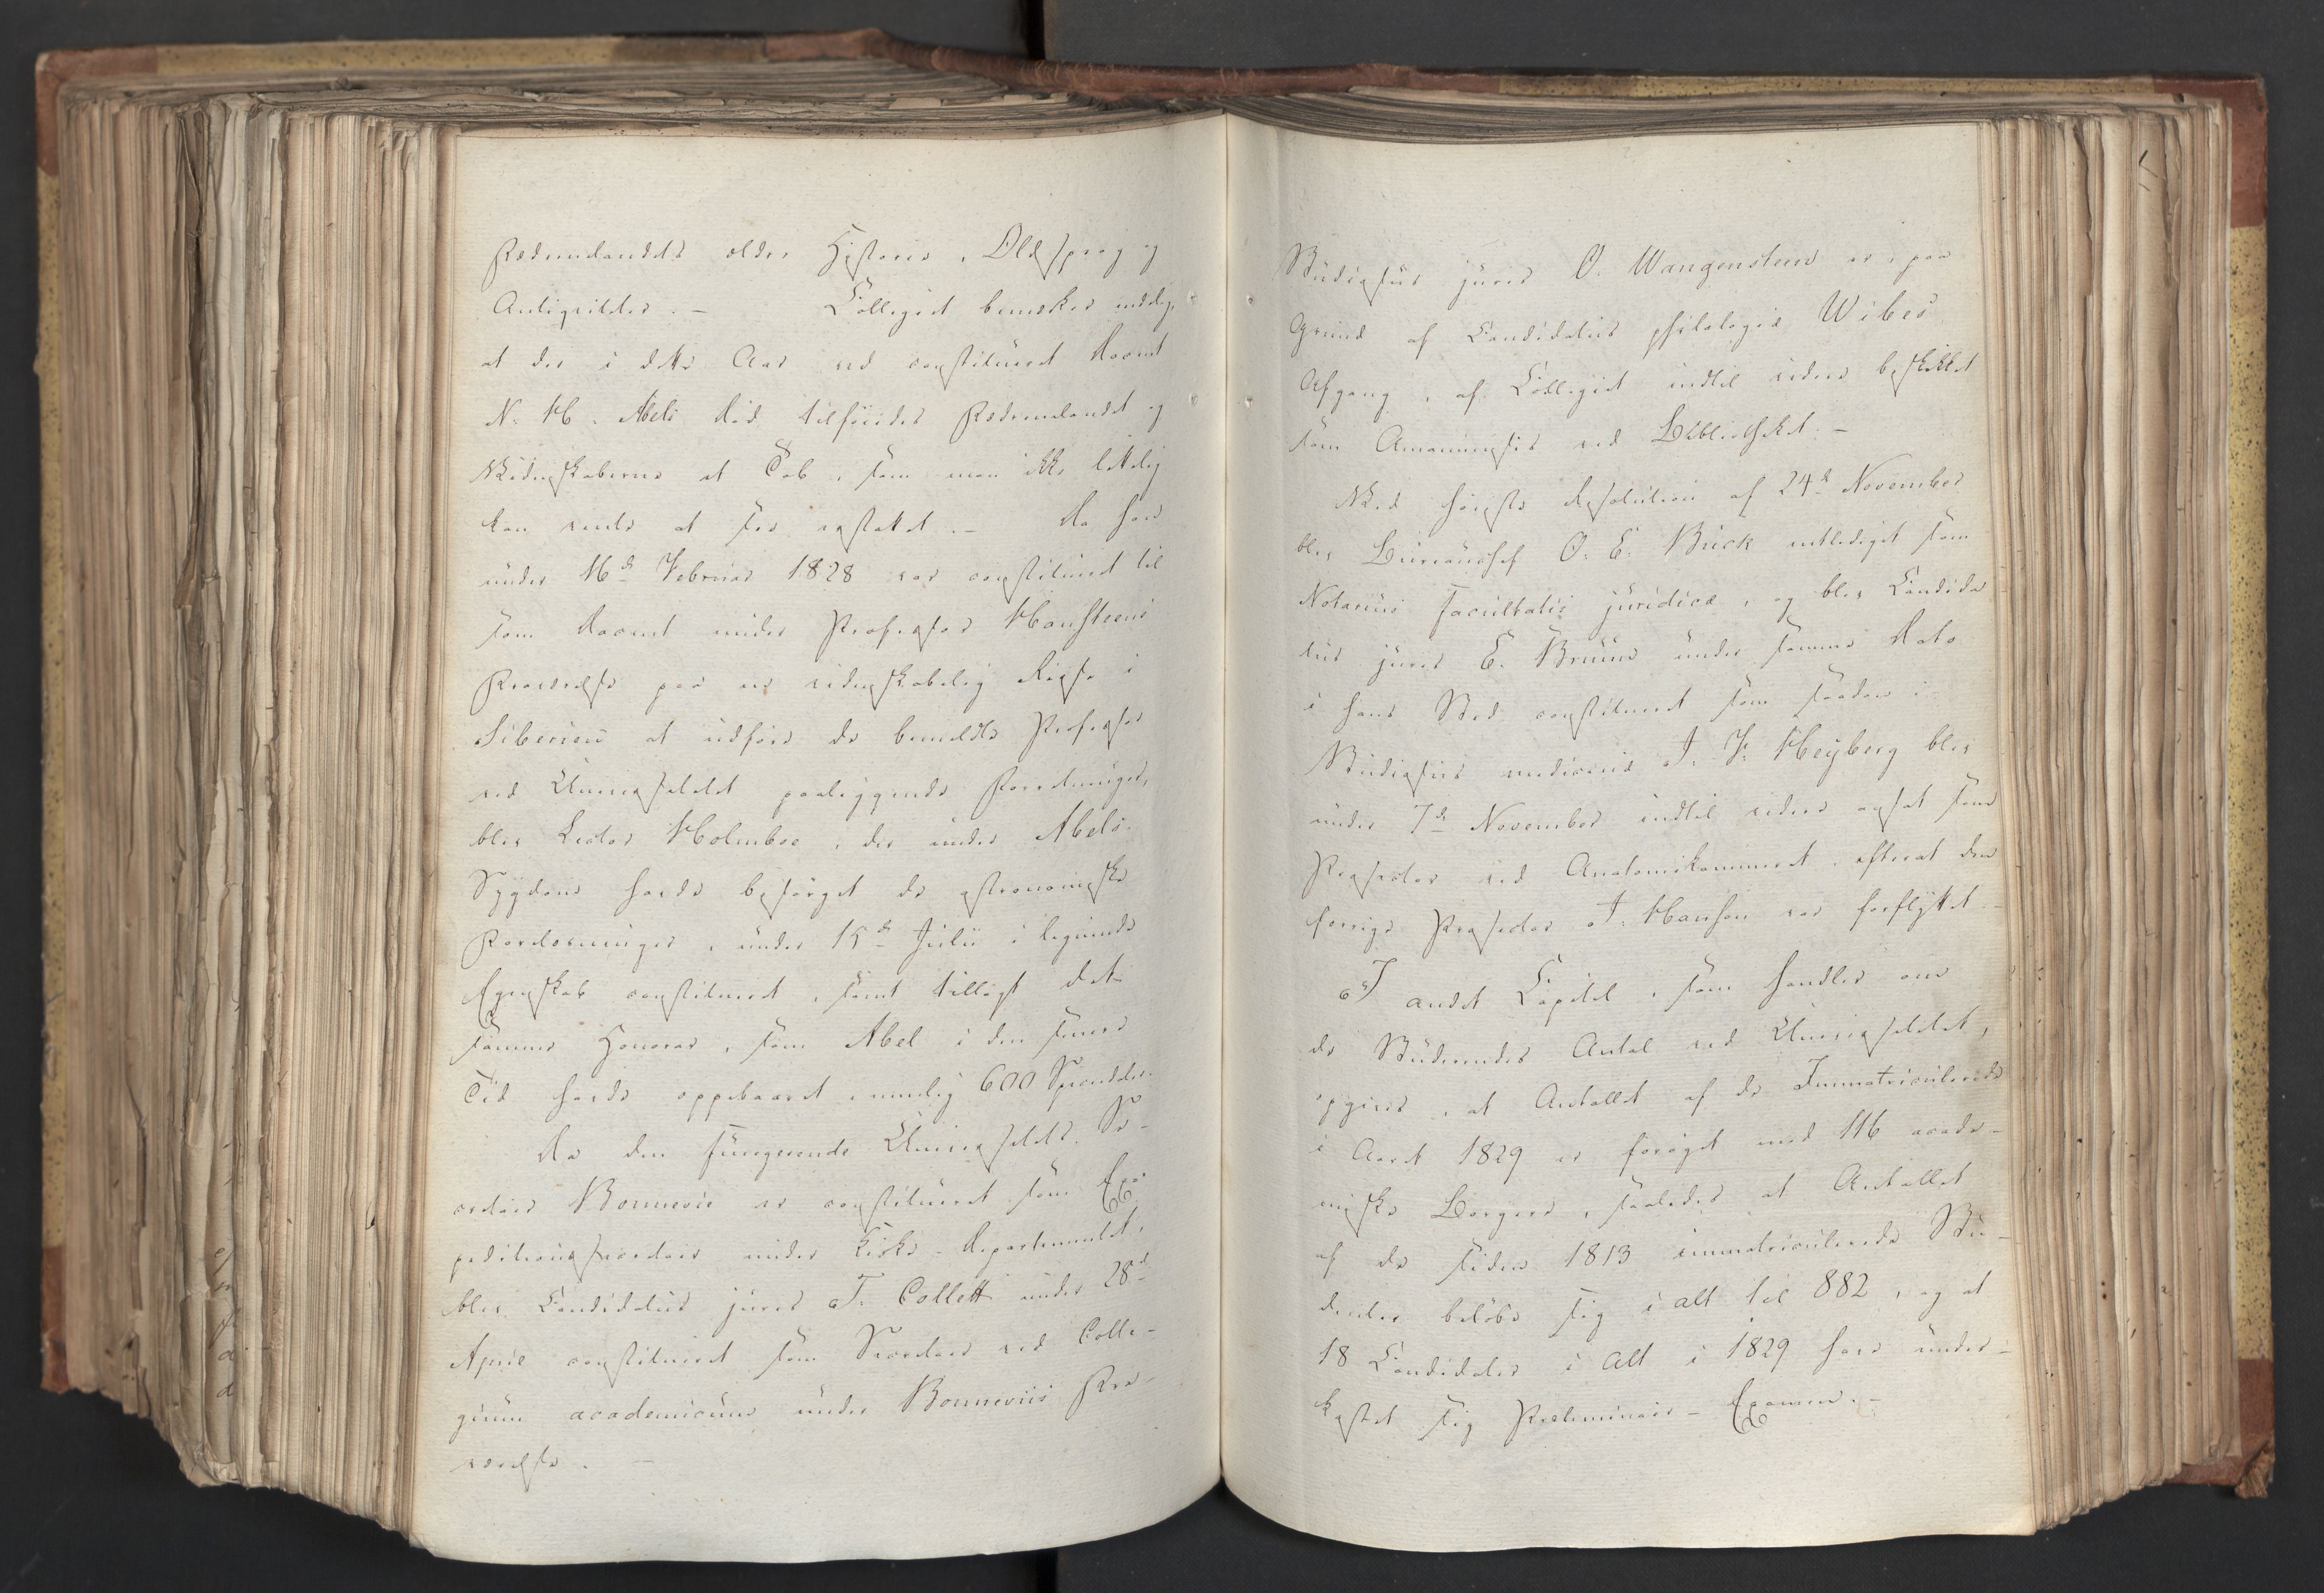 Fædrenelandets ældre Historie, Oldsprog og
Antiqviteter. – Collegiet bemærker endelig,
at der i dette Aar ved constitueret Docent
N. H. Abels Død tilføiedes Fædrenelandet og
Videnskaberne et Tab, som man ikke letteligt
kan vente at see erstattet. – Da han
under 16de Februar 1828 var constitueret til
som Docent under Professor Hansteens
Fraværelse paa en videnskabelig Reise i
Siberien at udføre de bemeldte Professor
ved Universitetet paaliggende Forretninger,
blev Lector Holmboe, der under Abels
Sygdom havde besørget de astronomiske
Forelæsninger, under 15de Julii i lignende
Egenskab constitueret, samt tillagt det
samme Honorar, som Abel i den senere
Tid havde oppebaaret, nemlig 600 Speciedaler.
Da den fungerende Universitets Se-
cretair Bonnevie er constitueret som Ex-
peditionssecretair under Kirke-Departementet,
blev Candidatus juris J. Collett under 28d
April constitueret som Secretair ved Colle-
gium academicum under Bonnevies Fra-
værelse. –
Studiosus juris O. Wangensteen er, paa
Grund af Candidatus philologiæ Wibes
Afgang, af Collegiet indtil videre beskikket
som Amanuensis ved Bibliotheket. –
Ved høieste Resolution af 24d November
blev Bureauchef O. E. Buck entlediget som
Notarius Facultatis juridicæ, og blev Candida-
tus juris E. Bruun under samme Dato
i hans Sted constitueret som saadan.
Studiosus medicinæ J. F. Heyberg blev
under 7de November indtil videre ansat som
Prosector ved Anatomikammeret, efterat den
forrige Prosector J. Hansen var forflyttet. –
I andet Capitel, som handler om
de Studerendes Antal ved Universitetet,
opgives, at Antallet af de Immatriculerede
i Aaret 1829 er forøget med 116 acade-
miske Borgere, saaledes at Antallet
af de siden 1813 immatriculerede Stu-
denter beløbe sig i alt til 882, og at
18 Candidater i Alt i 1829 have under-
kastet sig Præliminair-Examen. –